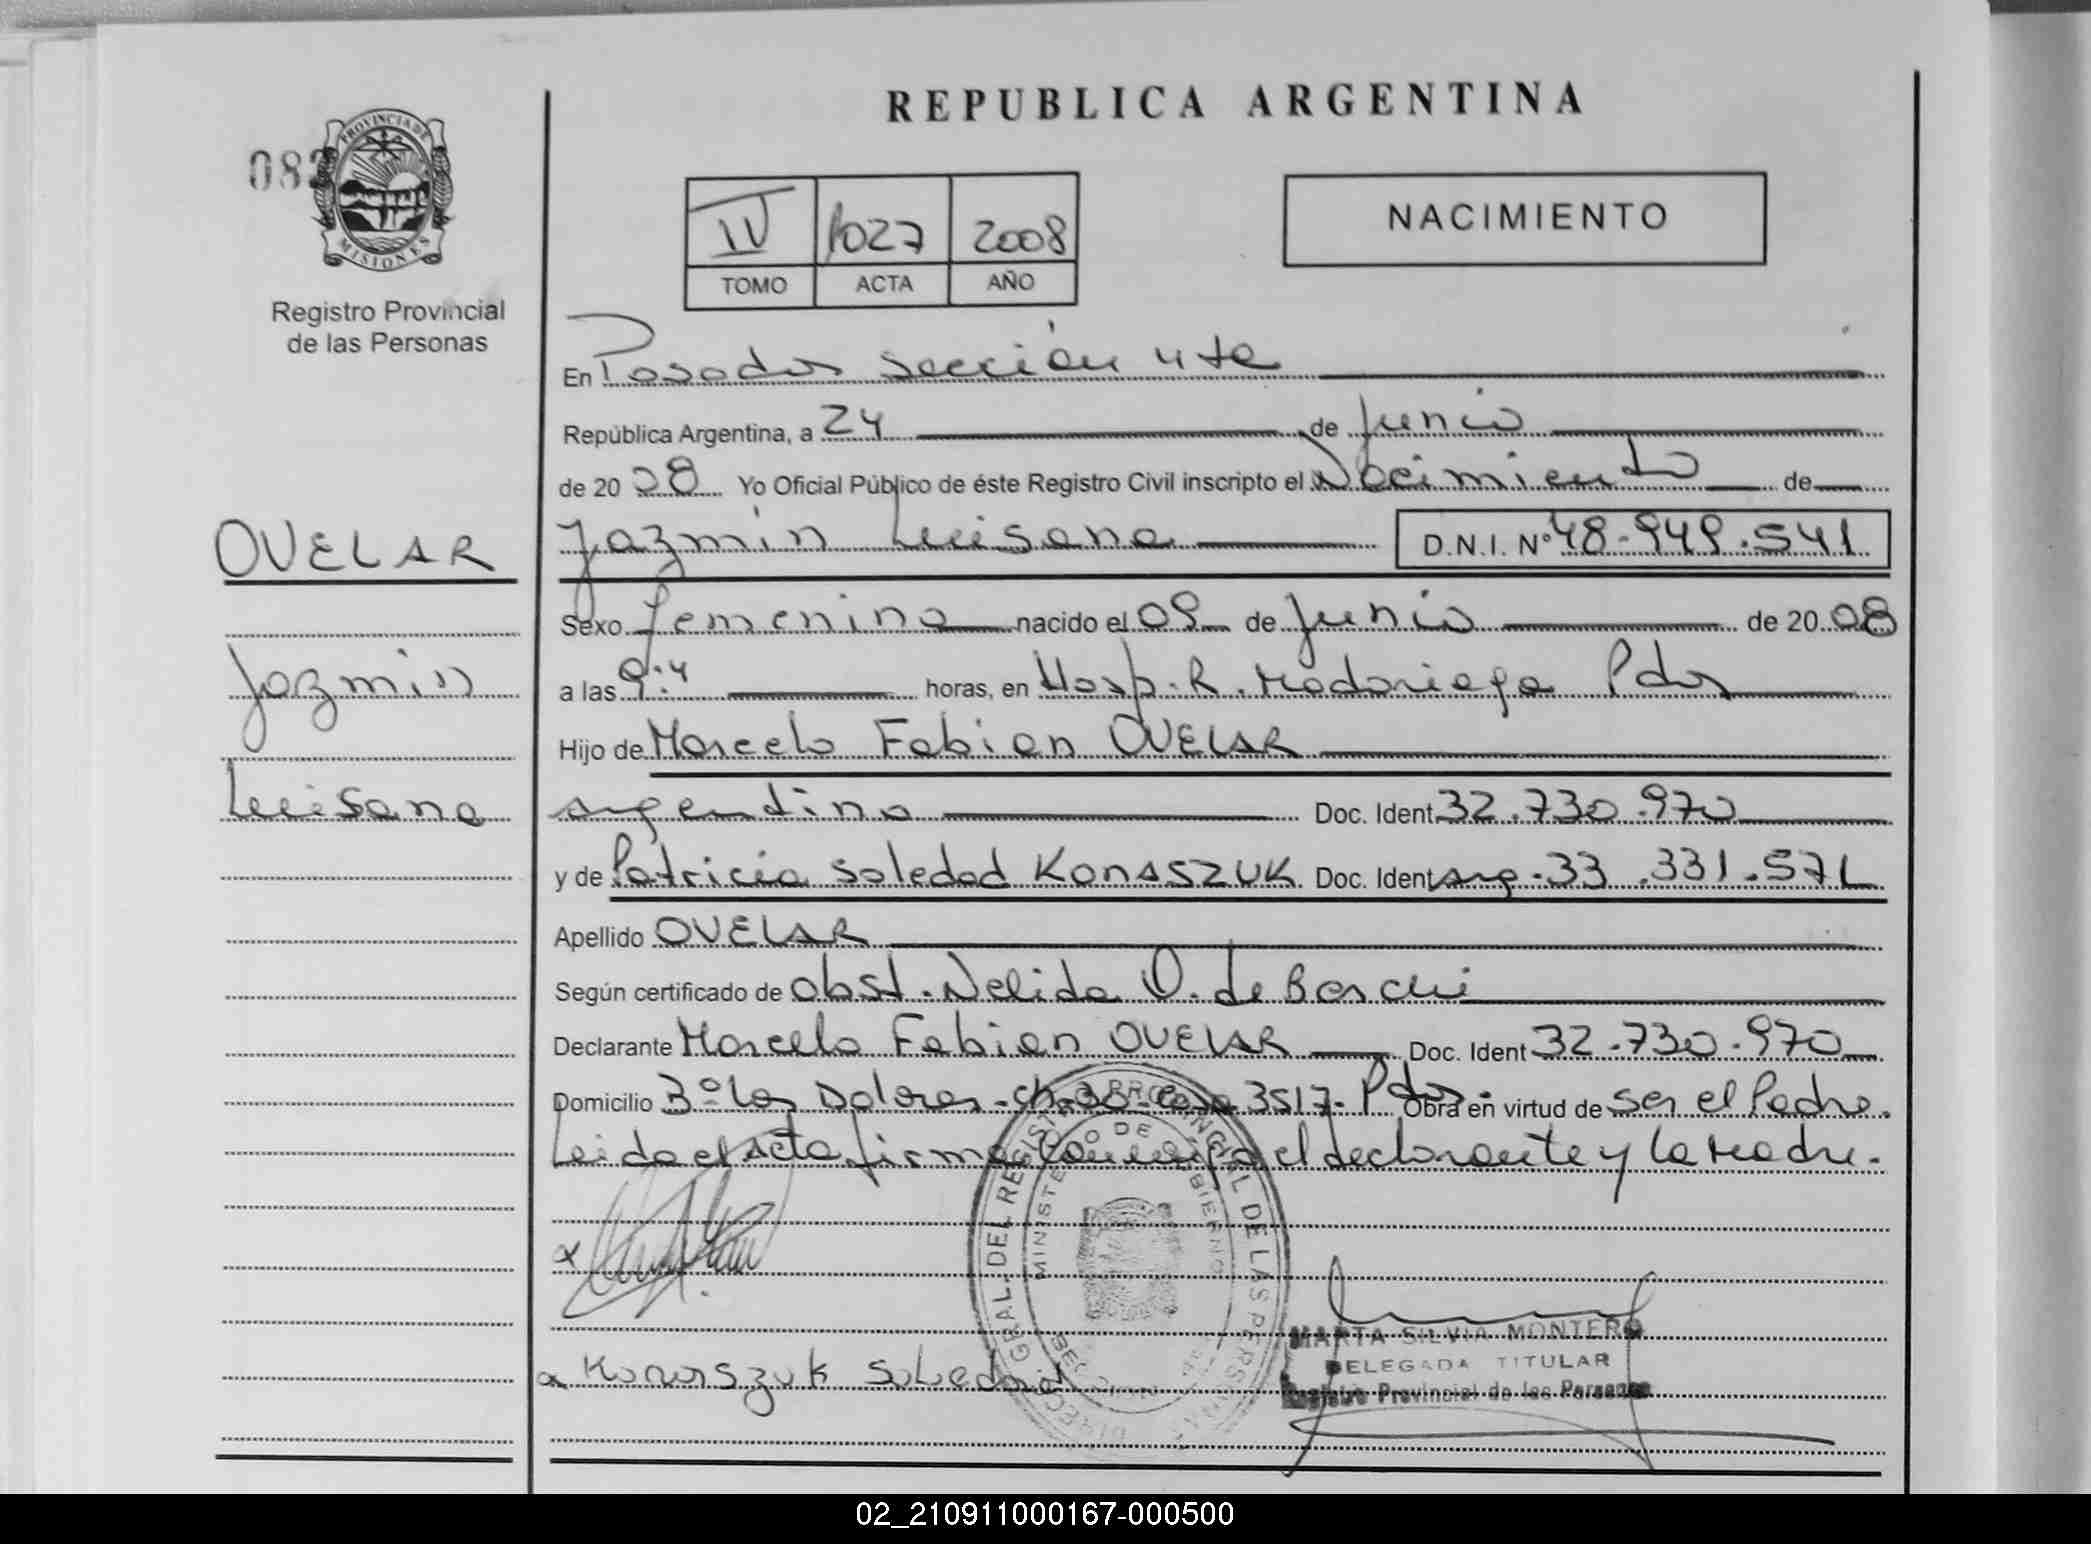 REPUBLICA ARGENTINA
PROVINCIA DE
MISIONES
Registro Provincial
de las Personas
NACIMIENTO
IV 1027 2008
TOMO ACTA AÑO
En Posadas sección 4ta
República Argentina, a 24 de Junio
de 20 08 Yo Oficial Público de éste Registro Civil inscripto el Nacimiento de
OVELAR
Jazmin Luisana D.N.I. Nº 48.949.541
Sexo femenino nacido el 09 de Junio de 20 08
Jazmin
a las 9:4 horas, en Hosp. R. Madariaga Pdas
Hijo de Marcelo Fabian OVELAR
Luisana
argentino Doc. Ident 32.730.970
y de Patricia Soledad KONASZUK Doc. Ident arg. 33.331.571
Apellido OVELAR
Según certificado de obst. Nelida O. de Boschi
Declarante Marcelo Fabian OVELAR Doc. Ident 32.730.970
Domicilio 3º Los Dolores - ch. 38 - casa 3517 - Pdas. Obra en virtud de ser el Padre.
Leida el acta firma conmigo el declarante y la Madre.
MINISTERIO DE GOBIERNO
MARTA SILVIA MONTERO
DELEGADA TITULAR
Registro Provincial de las Personas
Konaszuk Soledad
02_210911000167-000500